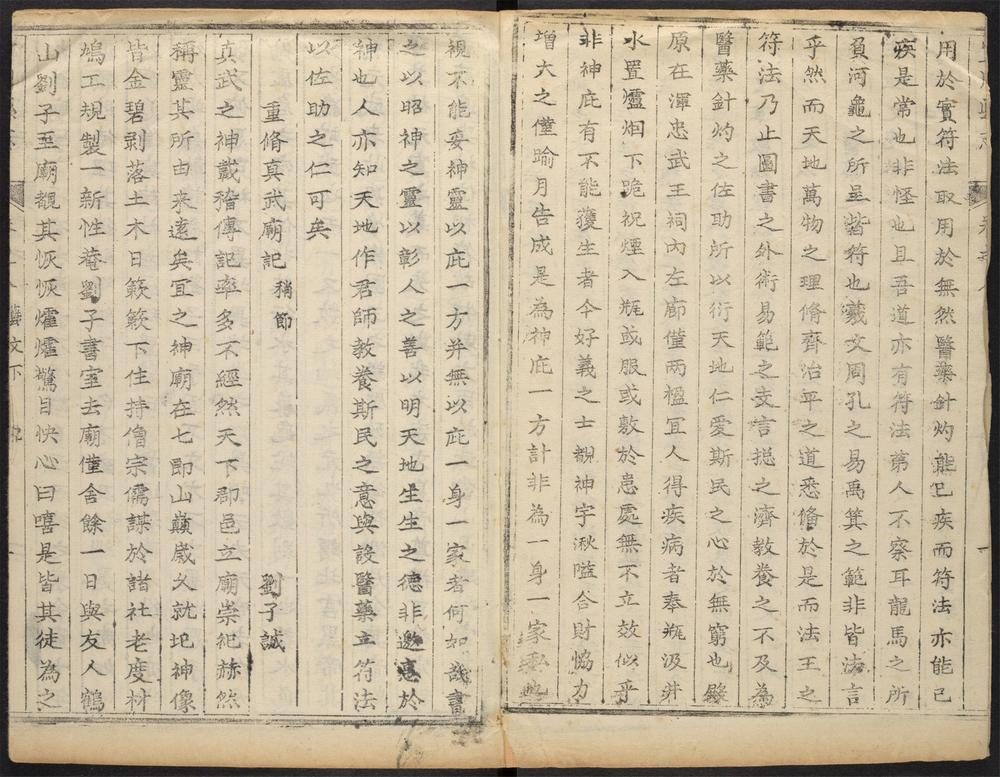 用於實符法取用於無然醫藥針灼能已疾而符法亦能已
疾是常也非怪也且吾道亦有符法第人不察耳龍馬之所
負河龜之所呈皆符也羲文周孔之易禹箕之範非皆法言
乎然而天地萬物之理脩齊治平之道悉僃於是而法王之
符法乃止圖書之外術易範之支言搃之濟教養之不及為
醫藥針灼之佐助所以衍天地仁愛斯民之心於無窮也殿
原在渾忠武王祠內左廊僅兩楹宜人得疾病者奉瓶汲井
水置爐烟下跪祝煙入瓶或服或敷於患處無不立效似乎
非神庇有不能獲生者今好義之士覩神宇湫隘合財恊力
增大之僅踰月告成是為神庇一方計非為一身一家私也
視不能妥神靈以庇一方并無以庇一身一家者何如哉書
之以昭神之靈以彰人之善以明天地生生之德非邀惠於
神也人亦知天地作君師教養斯民之意與設醫藥立符法
以佐助之仁可矣
重脩真武廟記 稍節 劉子誠
真武之神載稽傳記率多不經然天下郡邑立廟崇祀赫然
稱靈其所由來遠矣宜之神廟在七郎山巔歲久就圮神像
皆金碧剝落土木日簌簌下住持僧宗儒謀於諸社老度材
鳩工規製一新性菴劉子書室去廟僅舍餘一日與友人鶴
山劉子至廟覩其恢恢爟爟驚目快心曰嘻是皆其徒為之
文下